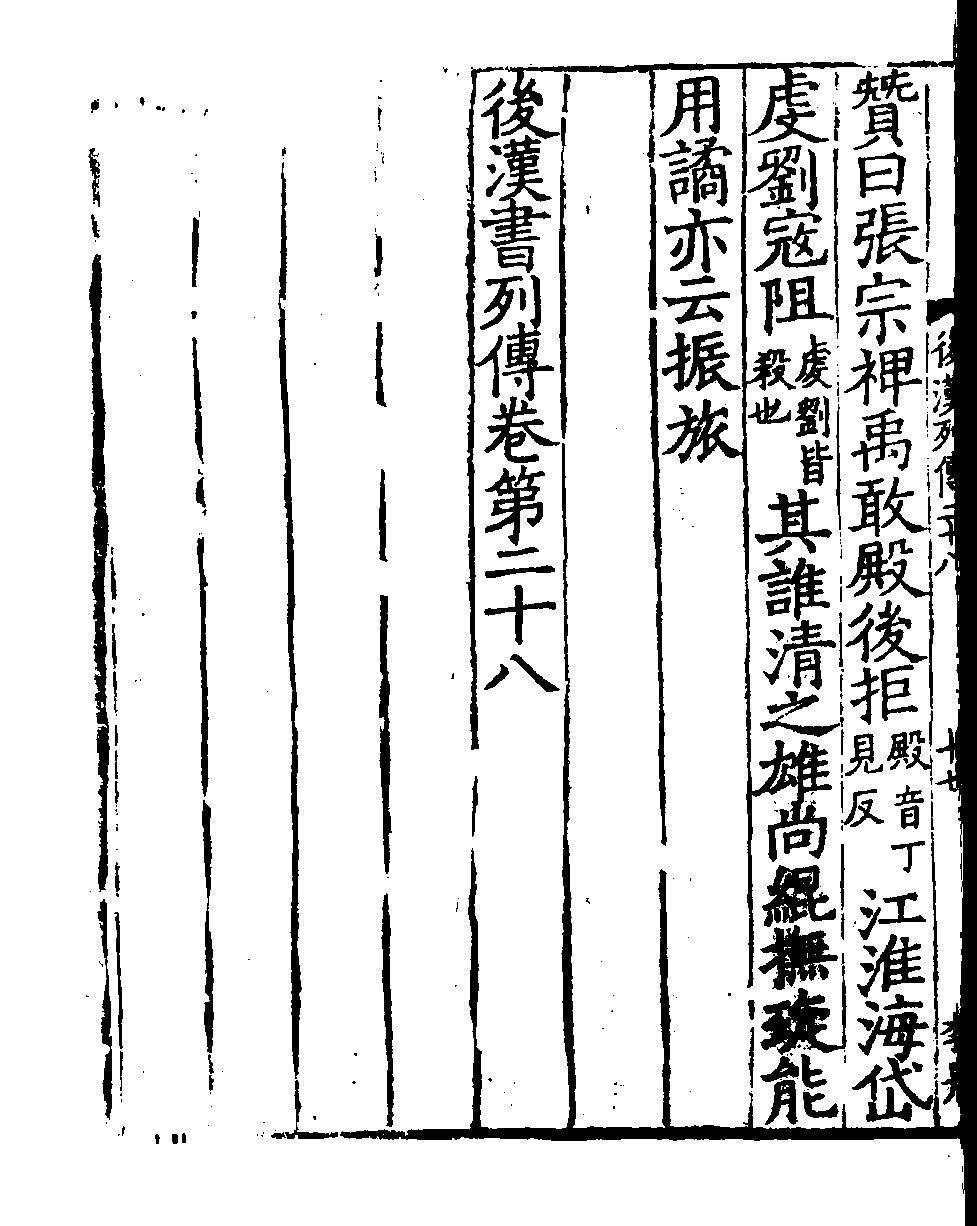 後漢列傳二十八
十七
贊曰張宗裨禹敢殿後拒殿音丁見反江淮海岱
虔劉寇阻虔劉皆殺也其誰清之雄尚緄撫琁能
用譎亦云振旅
後漢書列傳卷第二十八